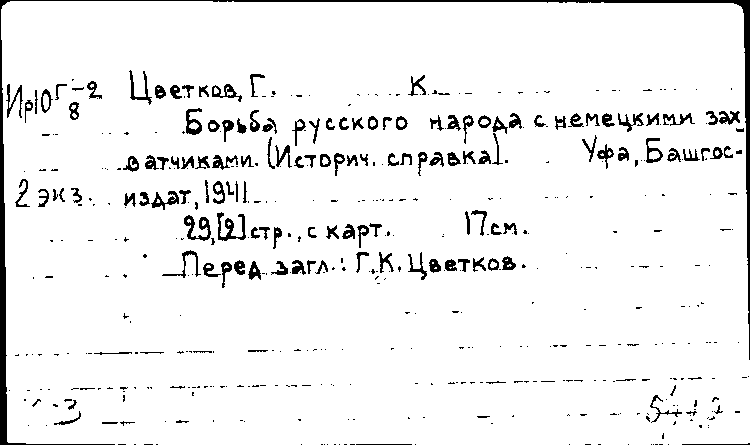 Ир10 Г-2 Цветков, Г. К.
8 Борьба русского народа с немецкими зах
ватчиками. (Историч. справка). Уфа, Башгос-
2 экз. издат, 1941
29,[2] стр., с карт. 17 см.
Перед загл.: Г.К. Цветков.